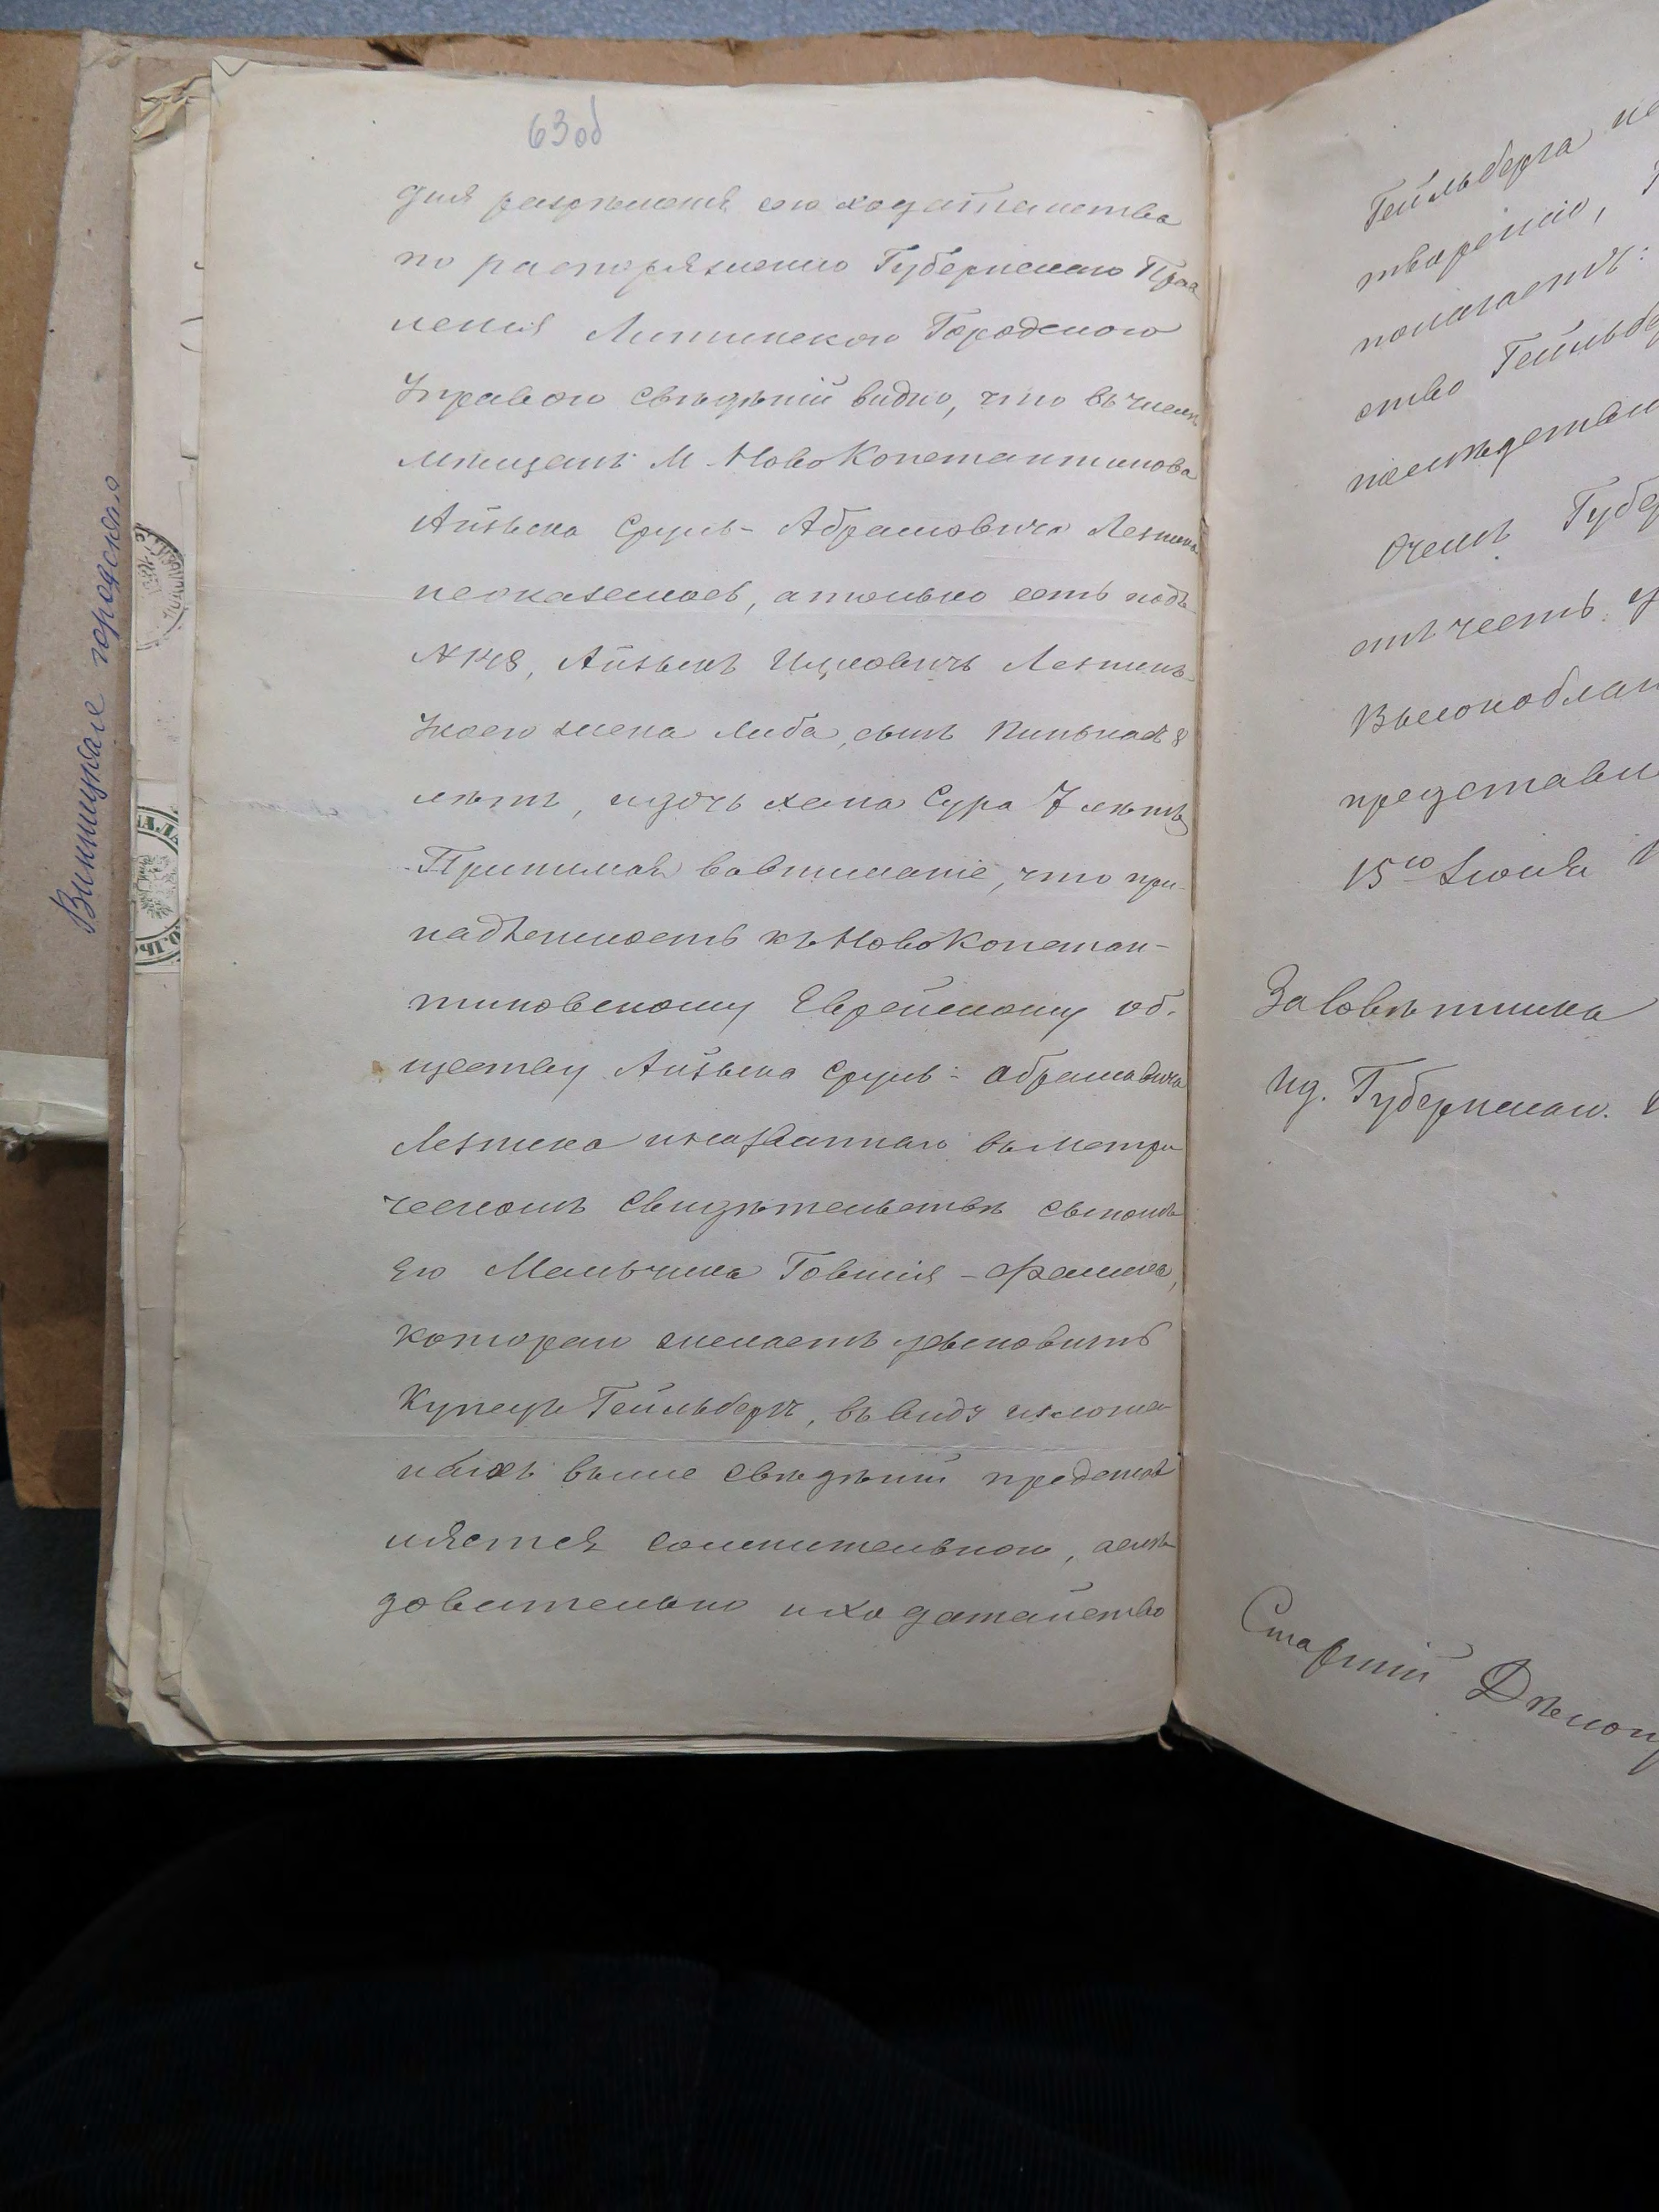 63 об
для разрѣшенія его ходатайства
по распоряженію Губернскаго Прав
ленія Литинскою Городскою
Управою свѣдѣній видно, что въ числѣ
мѣщанъ М. НовоКонстантинова
Айзика Сруль-Абрамовича Лезника
неоказалось, а только есть подъ
№ 148, Айзикъ Ицковичъ Лезникъ
у коего жена Либа, сынъ Пинькасъ 8
лѣтъ, и дочь Хана Сура 7 лѣтъ
Принимая вовниманіе, что при-
надлежность къ НовоКонстан-
тиновскому Еврейскому об-
ществу Айзика Сруль-Абрамовича
Лезника и названнаго въ метри
ческомъ свидѣтельствѣ сыномъ
его Мальчика Говшія-Фалика,
котораго желаетъ усыновить
Купецъ Гейльбергъ, въ виду изложен
ныхъ выше свѣдѣній представ
ляется сомнительною, а слѣ
довательно и ходатайство
Гейльберга не
творенію,
полагаетъ:
ство Гейльбе
послѣдстві
О чемъ Губер
имѣетъ честь
Высокоблаг
представи
15го Іюня
За Совѣтника
И.д. Губернскаго
Старшій Дѣлопр
Винницкаге городского